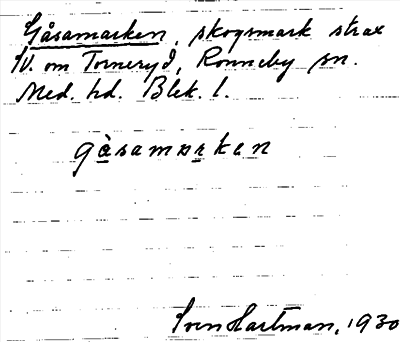 Gåsamarken, skogsmark strax
V. om Torneryd, Ronneby sn.
Med. hd. Blek. l.
gåsamarken
Sven Hartman, 1930